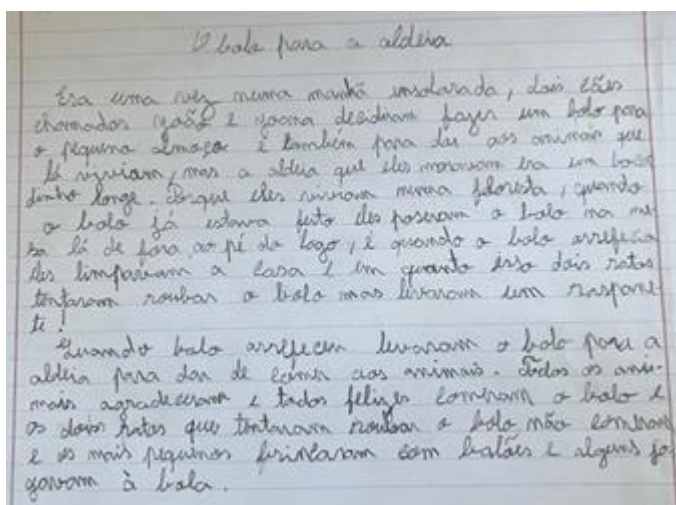 O bolo para a aldeia
Era uma vez numa manhã ensolarada, dois cães
chamados João e Joana decidiram fazer um bolo para
o pequeno almoço e também para dar aos animais que
lá viviam, mas a aldeia que eles moravam era um boca
dinho longe. Porque eles viviam numa floresta, quando
o bolo já estava feito eles poseram o bolo na me
sa lá de fora ao pé do lago, e quando o bolo arrefecia
eles limparam a casa e em quanto isso dois ratos
tentaram roubar o bolo mas levaram um raspane
te!
Quando bolo arrefeceu levaram o bolo para a
aldeia para dar de comer aos animais. Todos os ani-
mais agradeceram e todos felizes comeram o bolo e
os dois ratos que tentaram roubar o bolo não comeram
e os mais pequenos brincaram com balões e alguns jo
gavam à bola.